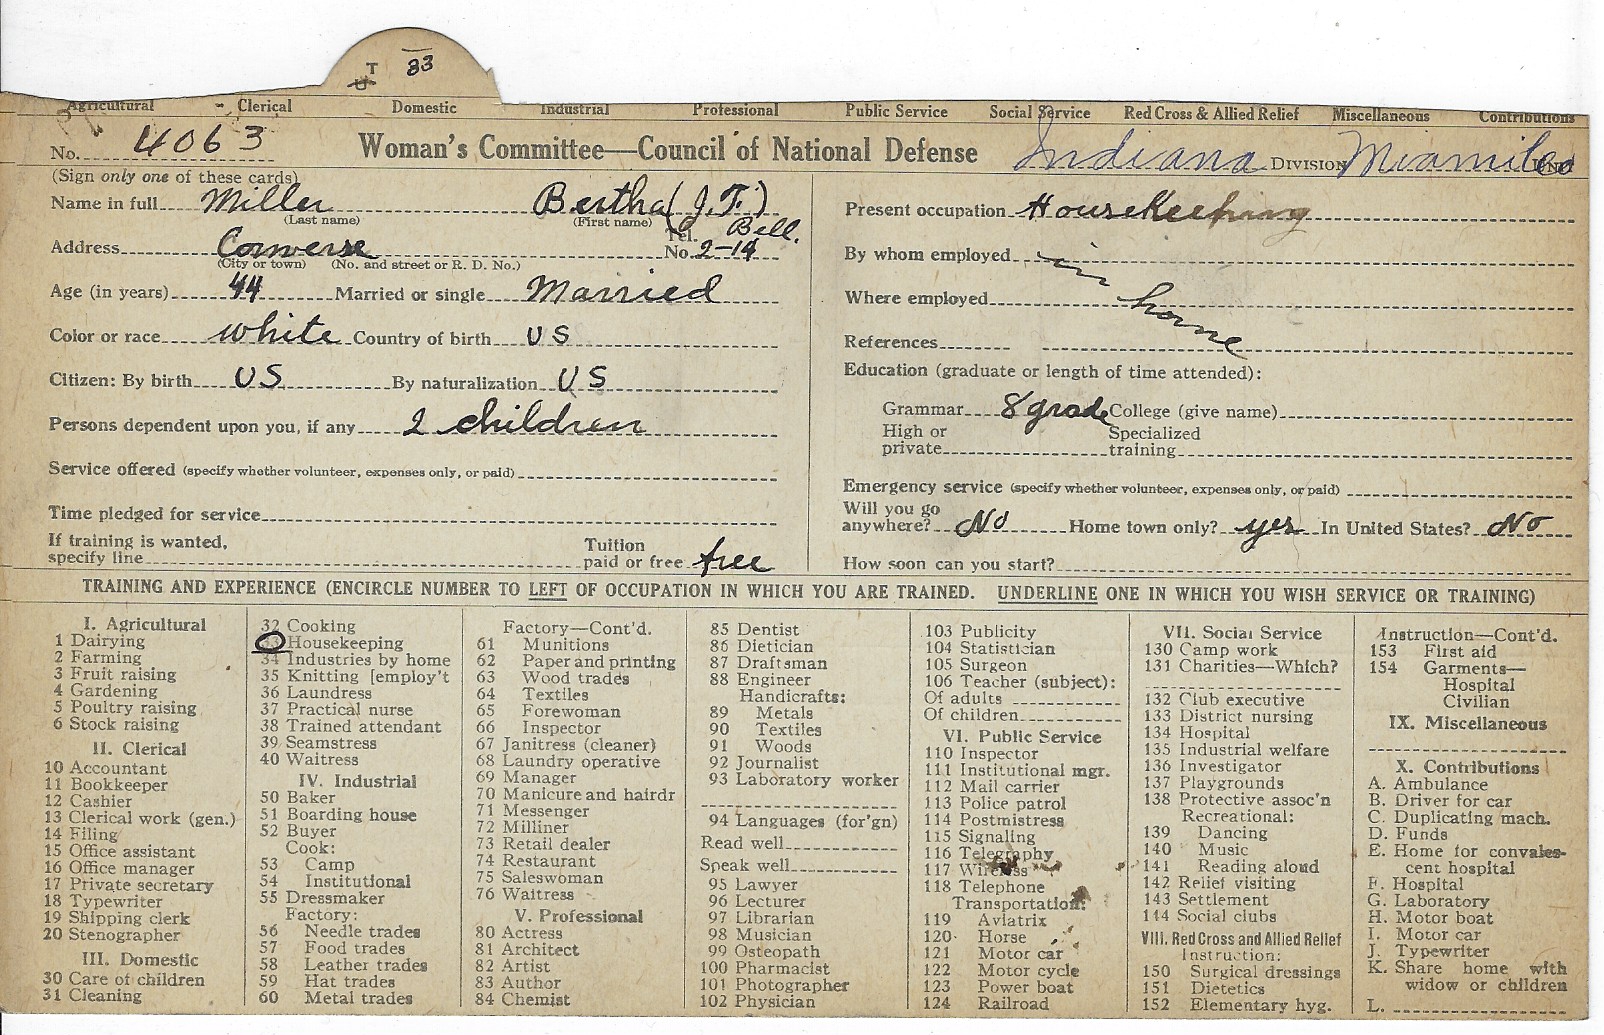 T 33
U
Agricultural Clerical Domestic Industrial Professional Public Service Social Service Red Cross & Allied Relief Miscellaneous Contributions
No. 4063 Woman's Committee—Council of National Defense Indiana DIVISION Miami Co UNIT
(Sign only one of these cards)
Name in full Miller Bertha (J.T.)
(Last name) (First name)
Address Converse Tel. No. Bell. 2-14
(City or town) (No. and street or R. D. No.)
Age (in years) 44 Married or single Married
Color or race white Country of birth US
Citizen: By birth US By naturalization US
Persons dependent upon you, if any 2 children
Service offered (specify whether volunteer, expenses only, or paid)
Time pledged for service
If training is wanted, specify line Tuition paid or free free
Present occupation HouseKeeping
By whom employed in
Where employed home
References
Education (graduate or length of time attended):
Grammar 8 grade College (give name)
High or private Specialized training
Emergency service (specify whether volunteer, expenses only, or paid)
Will you go anywhere? No Home town only? yes In United States? No
How soon can you start?
TRAINING AND EXPERIENCE (ENCIRCLE NUMBER TO LEFT OF OCCUPATION IN WHICH YOU ARE TRAINED. UNDERLINE ONE IN WHICH YOU WISH SERVICE OR TRAINING)
I. Agricultural
1 Dairying
2 Farming
3 Fruit raising
4 Gardening
5 Poultry raising
6 Stock raising
II. Clerical
10 Accountant
11 Bookkeeper
12 Cashier
13 Clerical work (gen.)
14 Filing
15 Office assistant
16 Office manager
17 Private secretary
18 Typewriter
19 Shipping clerk
20 Stenographer
III. Domestic
30 Care of children
31 Cleaning
32 Cooking
33 Housekeeping
34 Industries by home
35 Knitting [employ't
36 Laundress
37 Practical nurse
38 Trained attendant
39 Seamstress
40 Waitress
IV. Industrial
50 Baker
51 Boarding house
52 Buyer
Cook:
53 Camp
54 Institutional
55 Dressmaker
Factory:
56 Needle trades
57 Food trades
58 Leather trades
59 Hat trades
60 Metal trades
Factory—Cont'd.
61 Munitions
62 Paper and printing
63 Wood trades
64 Textiles
65 Forewoman
66 Inspector
67 Janitress (cleaner)
68 Laundry operative
69 Manager
70 Manicure and hairdr
71 Messenger
72 Milliner
73 Retail dealer
74 Restaurant
75 Saleswoman
76 Waitress
V. Professional
80 Actress
81 Architect
82 Artist
83 Author
84 Chemist
85 Dentist
86 Dietician
87 Draftsman
88 Engineer
Handicrafts:
89 Metals
90 Textiles
91 Woods
92 Journalist
93 Laboratory worker
94 Languages (for'gn)
Read well
Speak well
95 Lawyer
96 Lecturer
97 Librarian
98 Musician
99 Osteopath
100 Pharmacist
101 Photographer
102 Physician
103 Publicity
104 Statistician
105 Surgeon
106 Teacher (subject):
Of adults
Of children
VI. Public Service
110 Inspector
111 Institutional mgr.
112 Mail carrier
113 Police patrol
114 Postmistress
115 Signaling
116 Telegraphy
117 Wireless
118 Telephone
Transportation:
119 Aviatrix
120 Horse
121 Motor car
122 Motor cycle
123 Power boat
124 Railroad
VII. Social Service
130 Camp work
131 Charities—Which?
132 Club executive
133 District nursing
134 Hospital
135 Industrial welfare
136 Investigator
137 Playgrounds
138 Protective assoc'n
Recreational:
139 Dancing
140 Music
141 Reading aloud
142 Relief visiting
143 Settlement
144 Social clubs
VIII. Red Cross and Allied Relief
Instruction:
150 Surgical dressings
151 Dietetics
152 Elementary hyg.
Instruction—Cont'd.
153 First aid
154 Garments—
Hospital
Civilian
IX. Miscellaneous
X. Contributions
A. Ambulance
B. Driver for car
C. Duplicating mach.
D. Funds
E. Home for convales-
cent hospital
F. Hospital
G. Laboratory
H. Motor boat
I. Motor car
J. Typewriter
K. Share home with
widow or children
L.